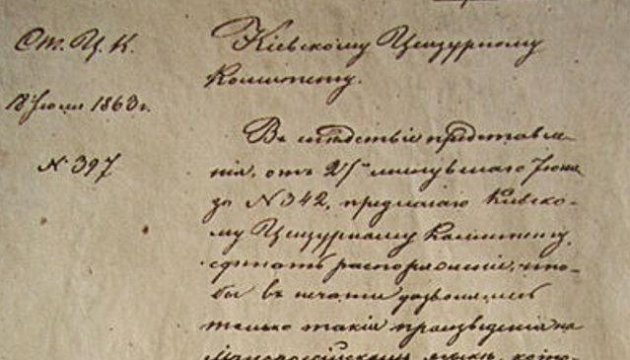 От. Ц. К.
18 Іюля 1863 г.
№ 397
Кіевскому Цензурному
Комитету.
Въ слѣдствіе представле-
нія, отъ 27го минувшаго Іюня
за № 342, предлагаю Кіевско-
му Цензурному Комитету,
сдѣлать распоряженіе, что-
бы къ печати дозволялись
только такія произведенія на
Малороссійскомъ языкѣ, кото-